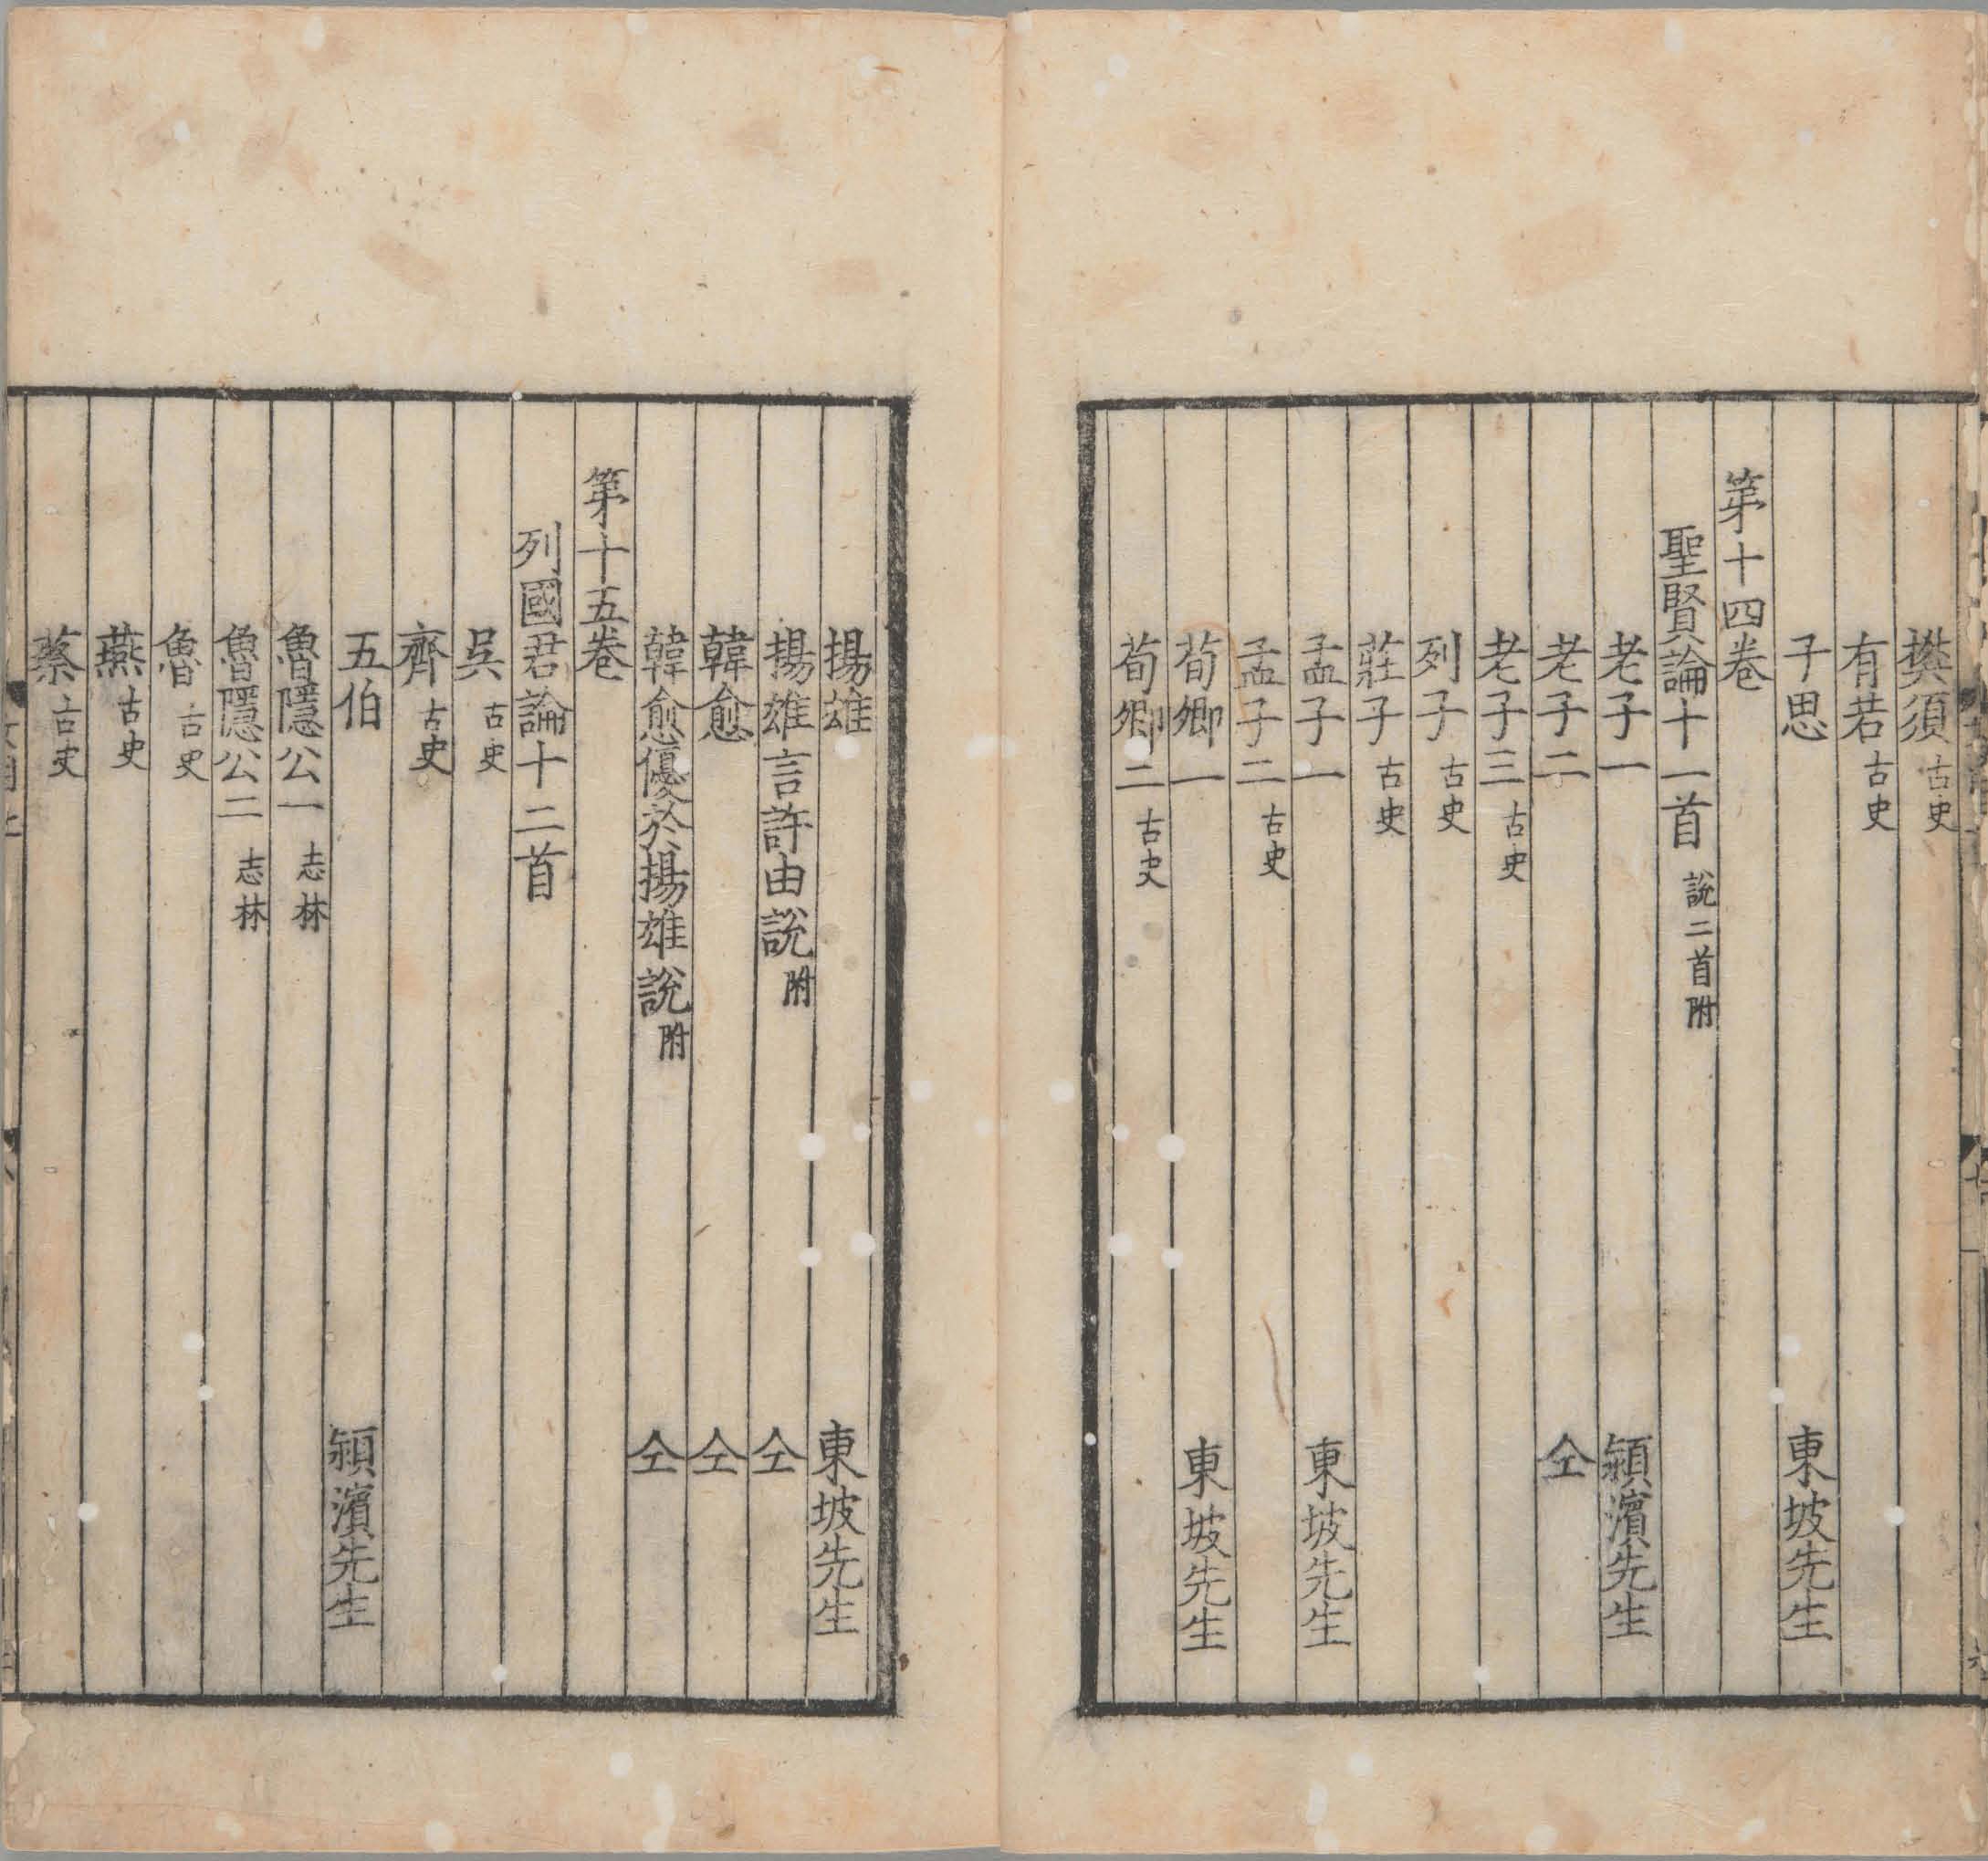 樊須 古史
有若 古史
子思 東坡先生
第十四卷
聖賢論十一首 說二首附
老子一 潁濱先生
老子二 仝
老子三 古史
列子 古史
莊子 古史
孟子一 東坡先生
孟子二 古史
荀卿一 東坡先生
荀卿二 古史
揚雄 東坡先生
揚雄言許由說 附 仝
韓愈 仝
韓愈優於揚雄說 附 仝
第十五卷
列國君論十二首
吳 古史
齊 古史
五伯 潁濱先生
魯隱公一 志林
魯隱公二 志林
魯 古史
燕 古史
蔡 古史